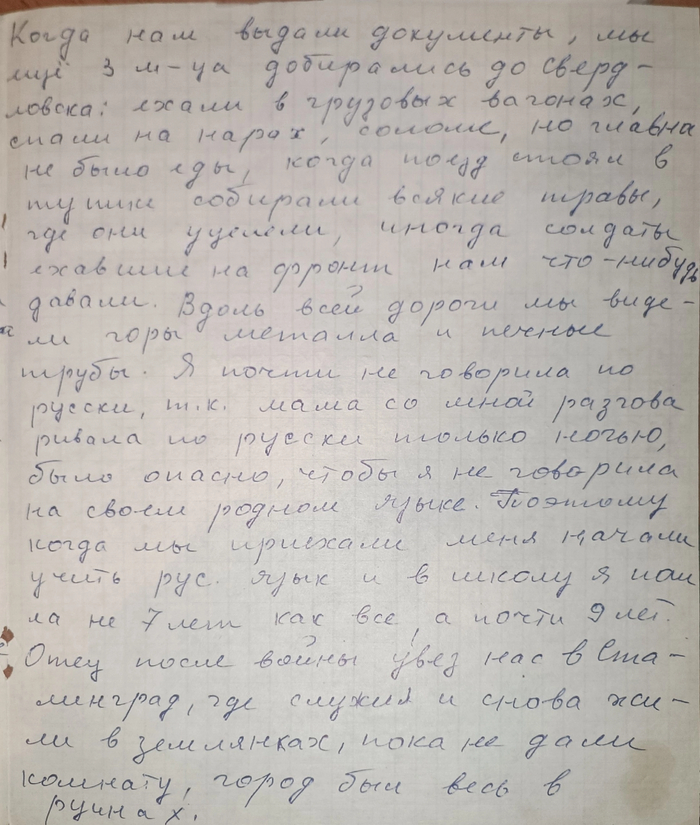 Когда нам выдали документы, мы
ещё 3 м-ца добирались до Сверд-
ловска: ехали в грузовых вагонах,
спали на нарах, соломе, но главна
не было еды, когда поезд стоял в
тупике собирали всякие травы,
где они уцелели, иногда солдаты
ехавшие на фронт нам что-нибудь
давали. Вдоль всей дороги мы виде-
ли горы металла и печные
трубы. Я почти не говорила по
русски, т.к. мама со мной разгова
ривала по русски только ночью,
было опасно, чтобы я не говорила
на своем родном языке. Поэтому
когда мы приехали меня начали
учить рус. язык и в школу я пош
ла не 7 лет как все, а почти 9 лет.
Отец после войны увёз нас в Ста-
линград, где служил и снова жи-
ли в землянках, пока не дали
комнату, город был весь в
руинах.